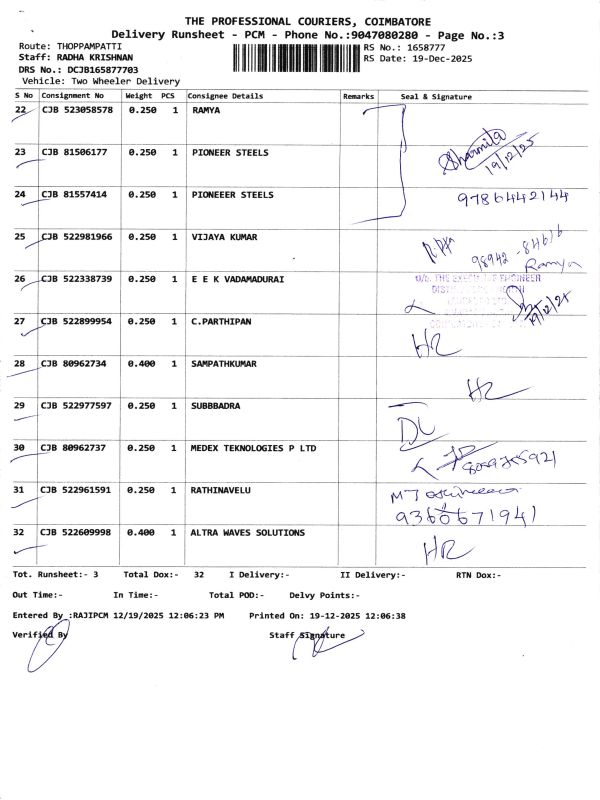 THE PROFESSIONAL COURIERS, COIMBATORE
Delivery Runsheet - PCM - Phone No.:9047080280 - Page No.:3
Route: THOPPAMPATTI
RS No.: 1658777
Staff: RADHA KRISHNAN
RS Date: 19-Dec-2025
DRS No.: DCJB165877703
Vehicle: Two Wheeler Delivery
S No Consignment No Weight PCS Consignee Details Remarks Seal & Signature
22 CJB 523058578 0.250 1 RAMYA
23 CJB 81506177 0.250 1 PIONEER STEELS
Sharmila
19/12/25
24 CJB 81557414 0.250 1 PIONEEER STEELS
9786442144
25 CJB 522981966 0.250 1 VIJAYA KUMAR
98942-84616
Ramya
26 CJB 522338739 0.250 1 E E K VADAMADURAI
O/o. THE EXECUTIVE ENGINEER
19/12/25
27 CJB 522899954 0.250 1 C.PARTHIPAN
HR
28 CJB 80962734 0.400 1 SAMPATHKUMAR
HR
29 CJB 522977597 0.250 1 SUBBBADRA
DL
30 CJB 80962737 0.250 1 MEDEX TEKNOLOGIES P LTD
31 CJB 522961591 0.250 1 RATHINAVELU
9360671941
32 CJB 522609998 0.400 1 ALTRA WAVES SOLUTIONS
HR
Tot. Runsheet:- 3 Total Dox:- 32 I Delivery:- II Delivery:- RTN Dox:-
Out Time:- In Time:- Total POD:- Delvy Points:-
Entered By :RAJIPCM 12/19/2025 12:06:23 PM Printed On: 19-12-2025 12:06:38
Verified By Staff Signature